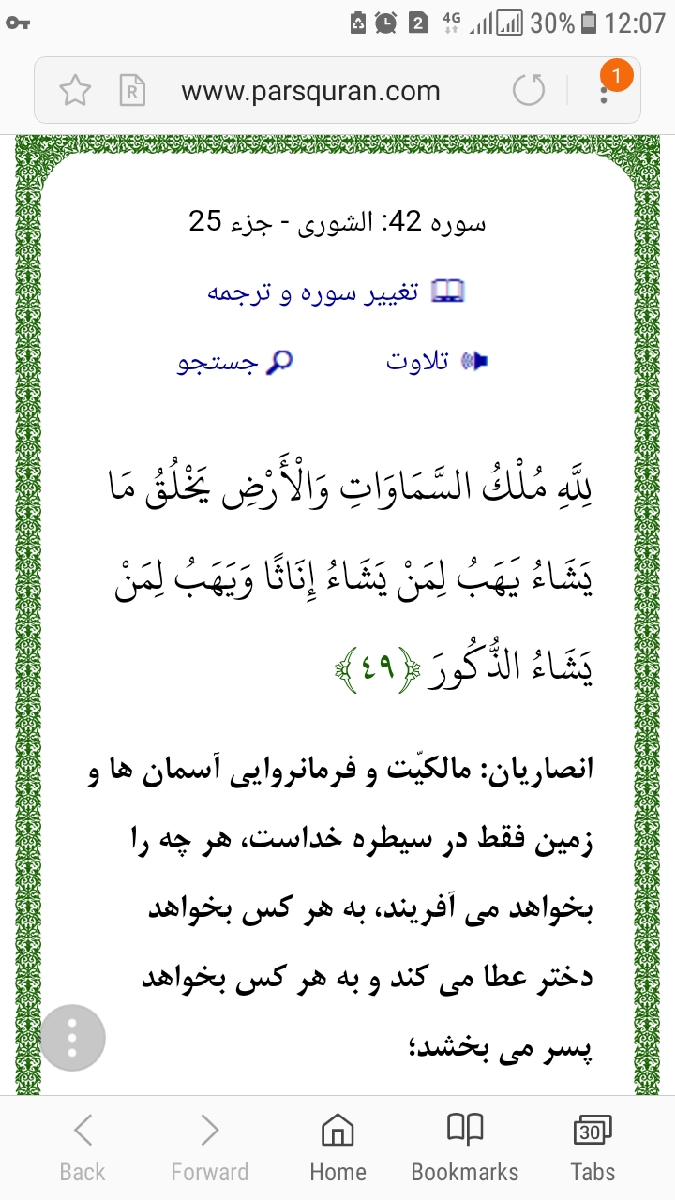 2 4G 30% 12:07
R www.parsquran.com 1
سوره 42: الشورى - جزء 25
تغییر سوره و ترجمه
تلاوت جستجو
لِلَّهِ مُلْكُ السَّمَاوَاتِ وَالْأَرْضِ يَخْلُقُ مَا
يَشَاءُ يَهَبُ لِمَنْ يَشَاءُ إِنَاثًا وَيَهَبُ لِمَنْ
يَشَاءُ الذُّكُورَ ﴿٤٩﴾
انصاریان: مالکیّت و فرمانروایی آسمان ها و
زمین فقط در سیطره خداست، هر چه را
بخواهد می آفریند، به هر کس بخواهد
دختر عطا می کند و به هر کس بخواهد
پسر می بخشد؛
Back Forward Home Bookmarks 30 Tabs